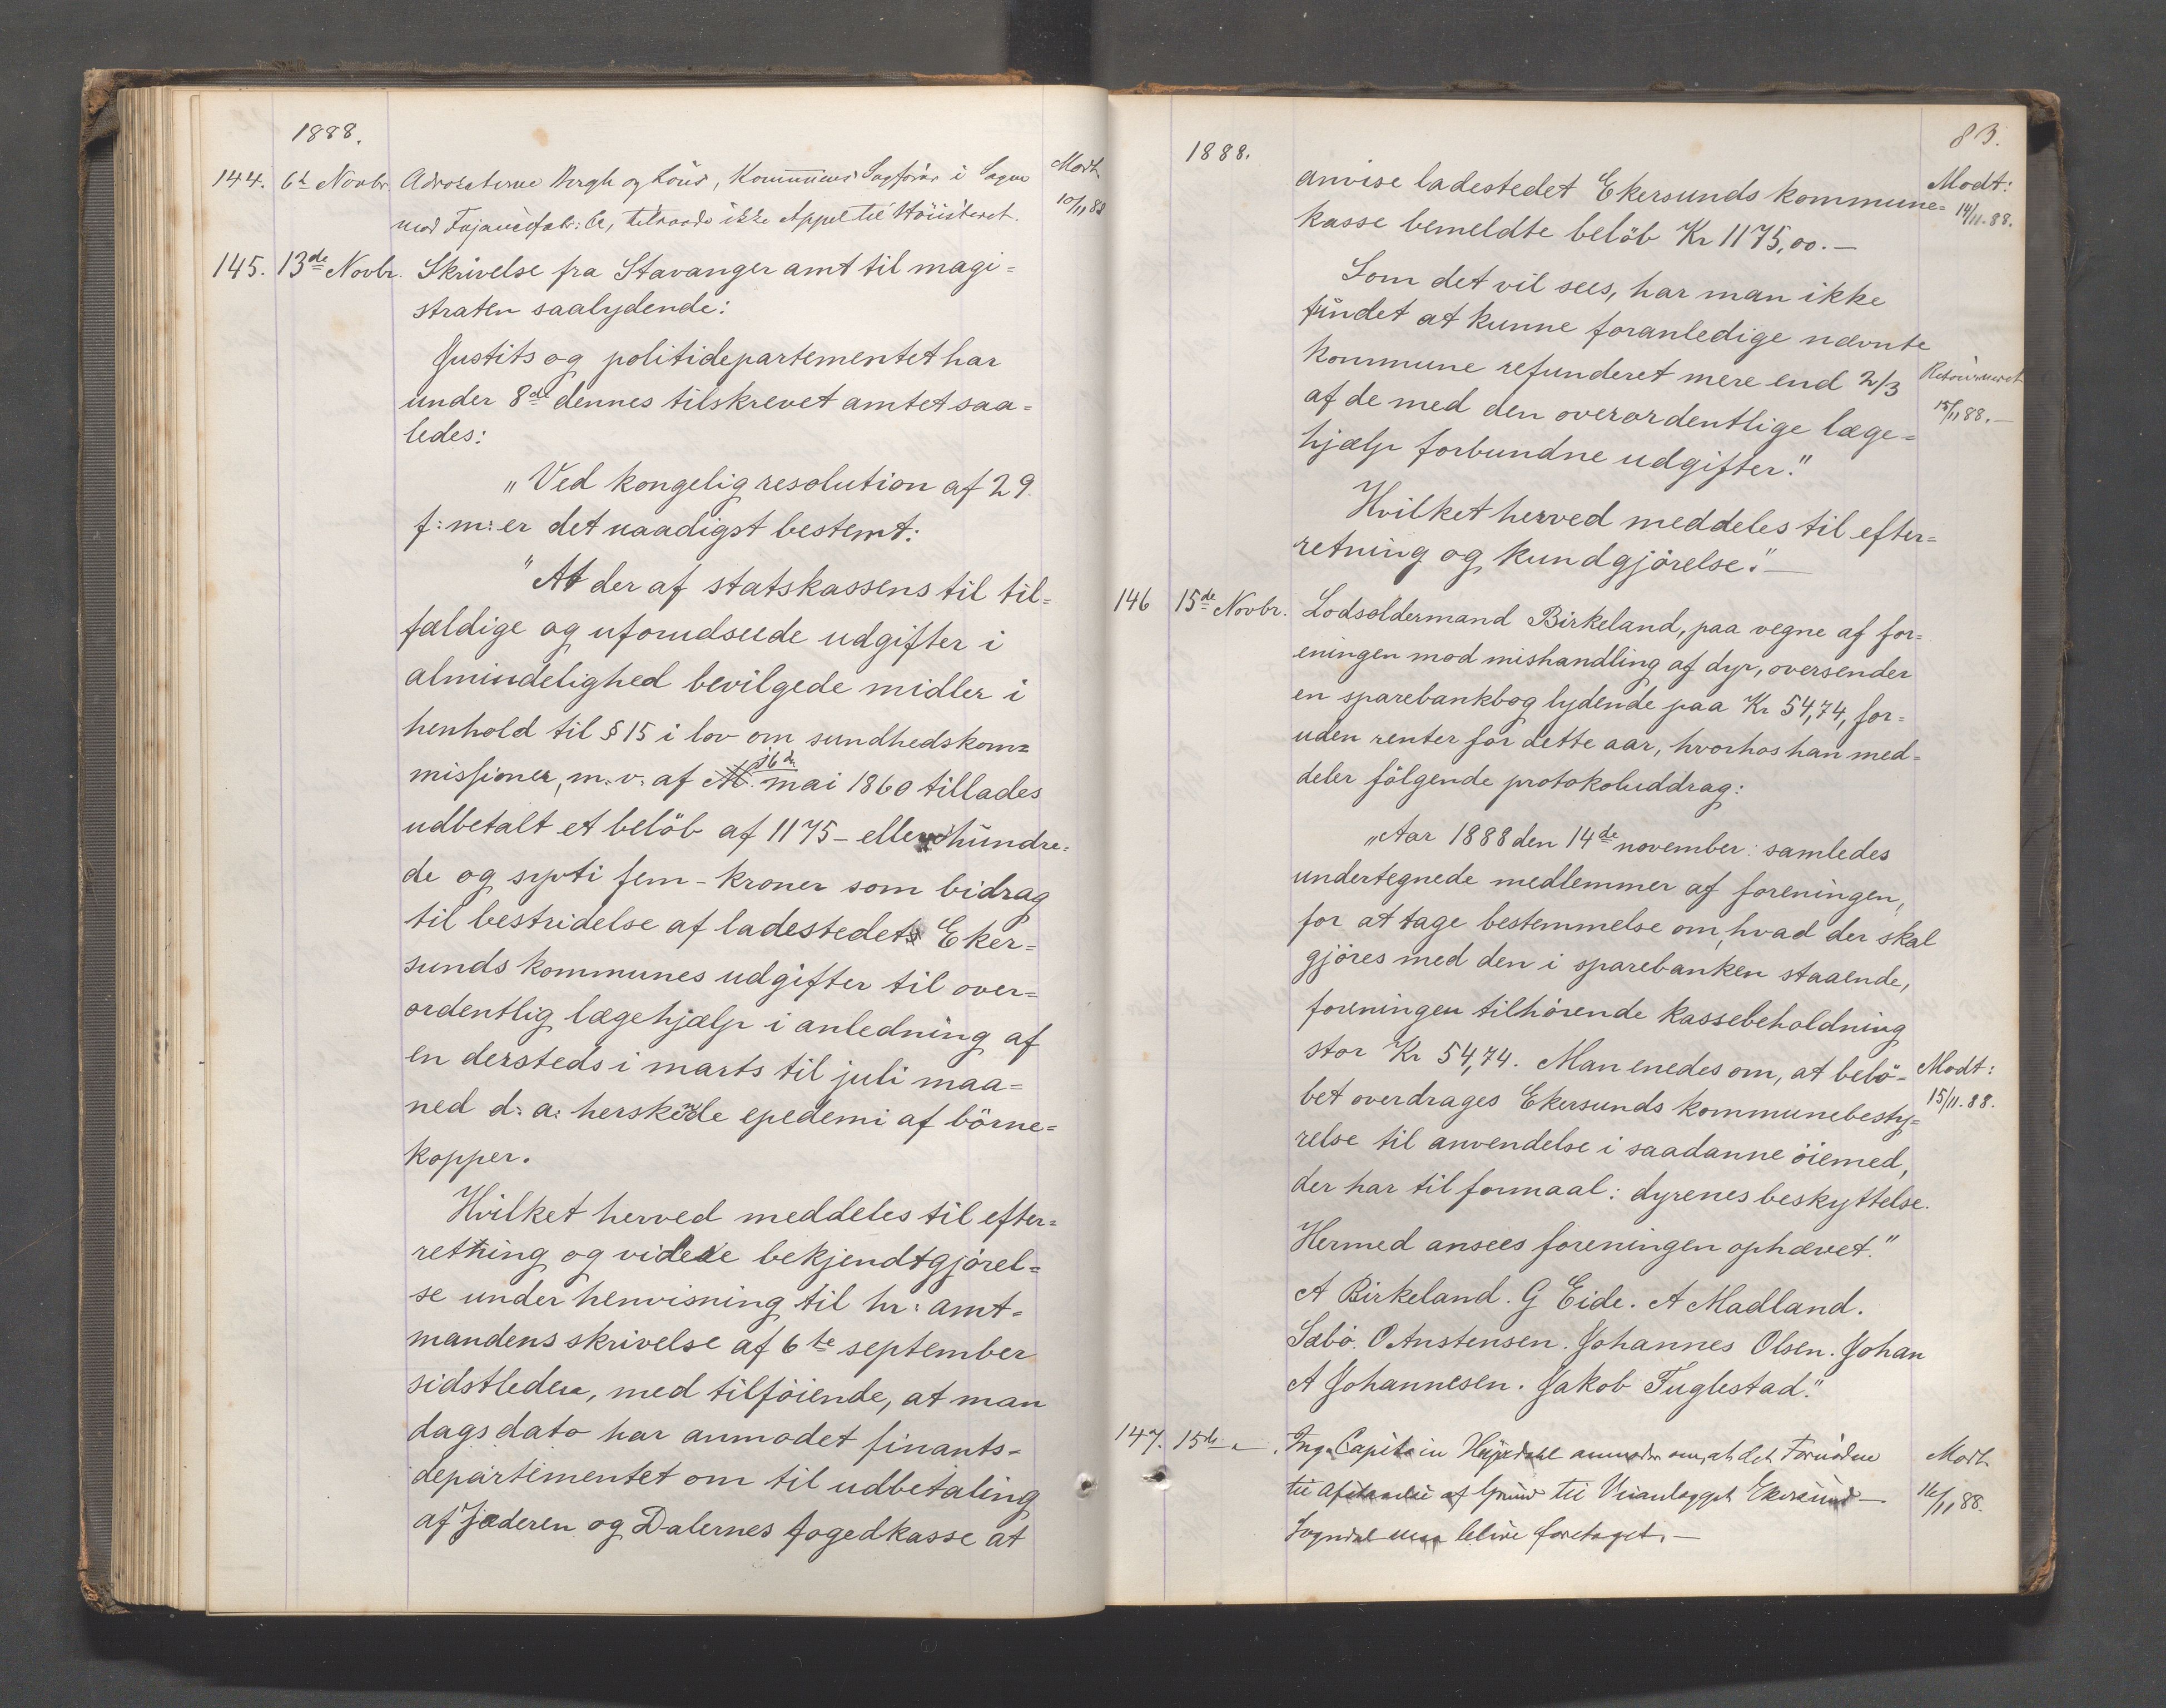 1888.
144. 6te Novbr. Advokaterne Bergh og Lous, Kommunens Sagförer i Sagen Modt.
mod Fajancefabr: Co, tilraade ikke Appel til Höiesteret. 10/11 88
145. 13de Novbr. Skrivelse fra Stavanger amt til magi=
straten saalydende:
Justits og politidepartementet har
under 8de dennes tilskrevet amtet saa=
ledes:
„Ved kongelig resolution af 29
f: m: er det naadigst bestemt:
"At der af statskassens til til=
fældige og uforudseede udgifter i
almindelighed bevilgede midler i
henhold til § 15 i lov om sundhedskom=
missioner, m. v. af 16de mai 1860 tillades
udbetalt et belöb af 1175 – ellevehundre=
de og sytti fem – kroner som bidrag
til bestridelse af ladestedet Eker=
sunds kommunes udgifter til over=
ordentlig lægehjælp i anledning af
en dersteds i marts til juli maa=
ned d: a: herskede epedemi af börne=
kopper.
Hvilket herved meddeles til efter=
retning og videre bekjendtgjörel=
se under henvisning til hr: amt=
mandens skrivelse af 6te september
sidstleden, med tilföiende, at man
dags dato har anmodet finants=
departementet om til udbetaling
af Jæderen og Dalernes fogedkasse at
83.
1888.
anvise ladestedet Ekersunds kommune= Modt:
kasse bemeldte belöb Kr 1175,00.— 14/11. 88.
Som det vil sees, har man ikke
fundet at kunne foranledige nævnte
kommune refunderet mere end 2/3 Retourneret
af de med den overordentlige læge= 15/11 88.—
hjælp forbundne udgifter."
Hvilket herved meddeles til efter=
retning og kundgjörelse."—
146 15de Novbr. Lodsoldermand Birkeland, paa vegne af for=
eningen mod mishandling af dyr, oversender
en sparebankbog lydende paa Kr 54,74, for=
uden renter for dette aar, hvorhos han med=
deler fölgende protokoluddrag:
„Aar 1888 den 14de november samledes
undertegnede medlemmer af foreningen,
for at tage bestemmelse om, hvad der skal
gjöres med den i sparebanken staaende,
foreningen tilhörende kassebeholdning
stor Kr 54,74. Man enedes om, at belö= Modt:
bet overdrages Ekersunds kommunebesty= 15/11. 88.
relse til anvendelse i saadanne öiemed,
der har til formaal: dyrenes beskyttelse.
Hermed ansees foreningen ophævet."
A Birkeland. G Eide. A Madland.
Sæbö. O Anstensen. Johannes Olsen. Johan
A Johannesen. Jakob Fuglestad."
147. 15de Ing. Capitain anmoder om, at det Fornödne Modt.
til af Grund til Veianlægget Ekersund — 16/11 88.
Sogndal maa blive foretaget.—